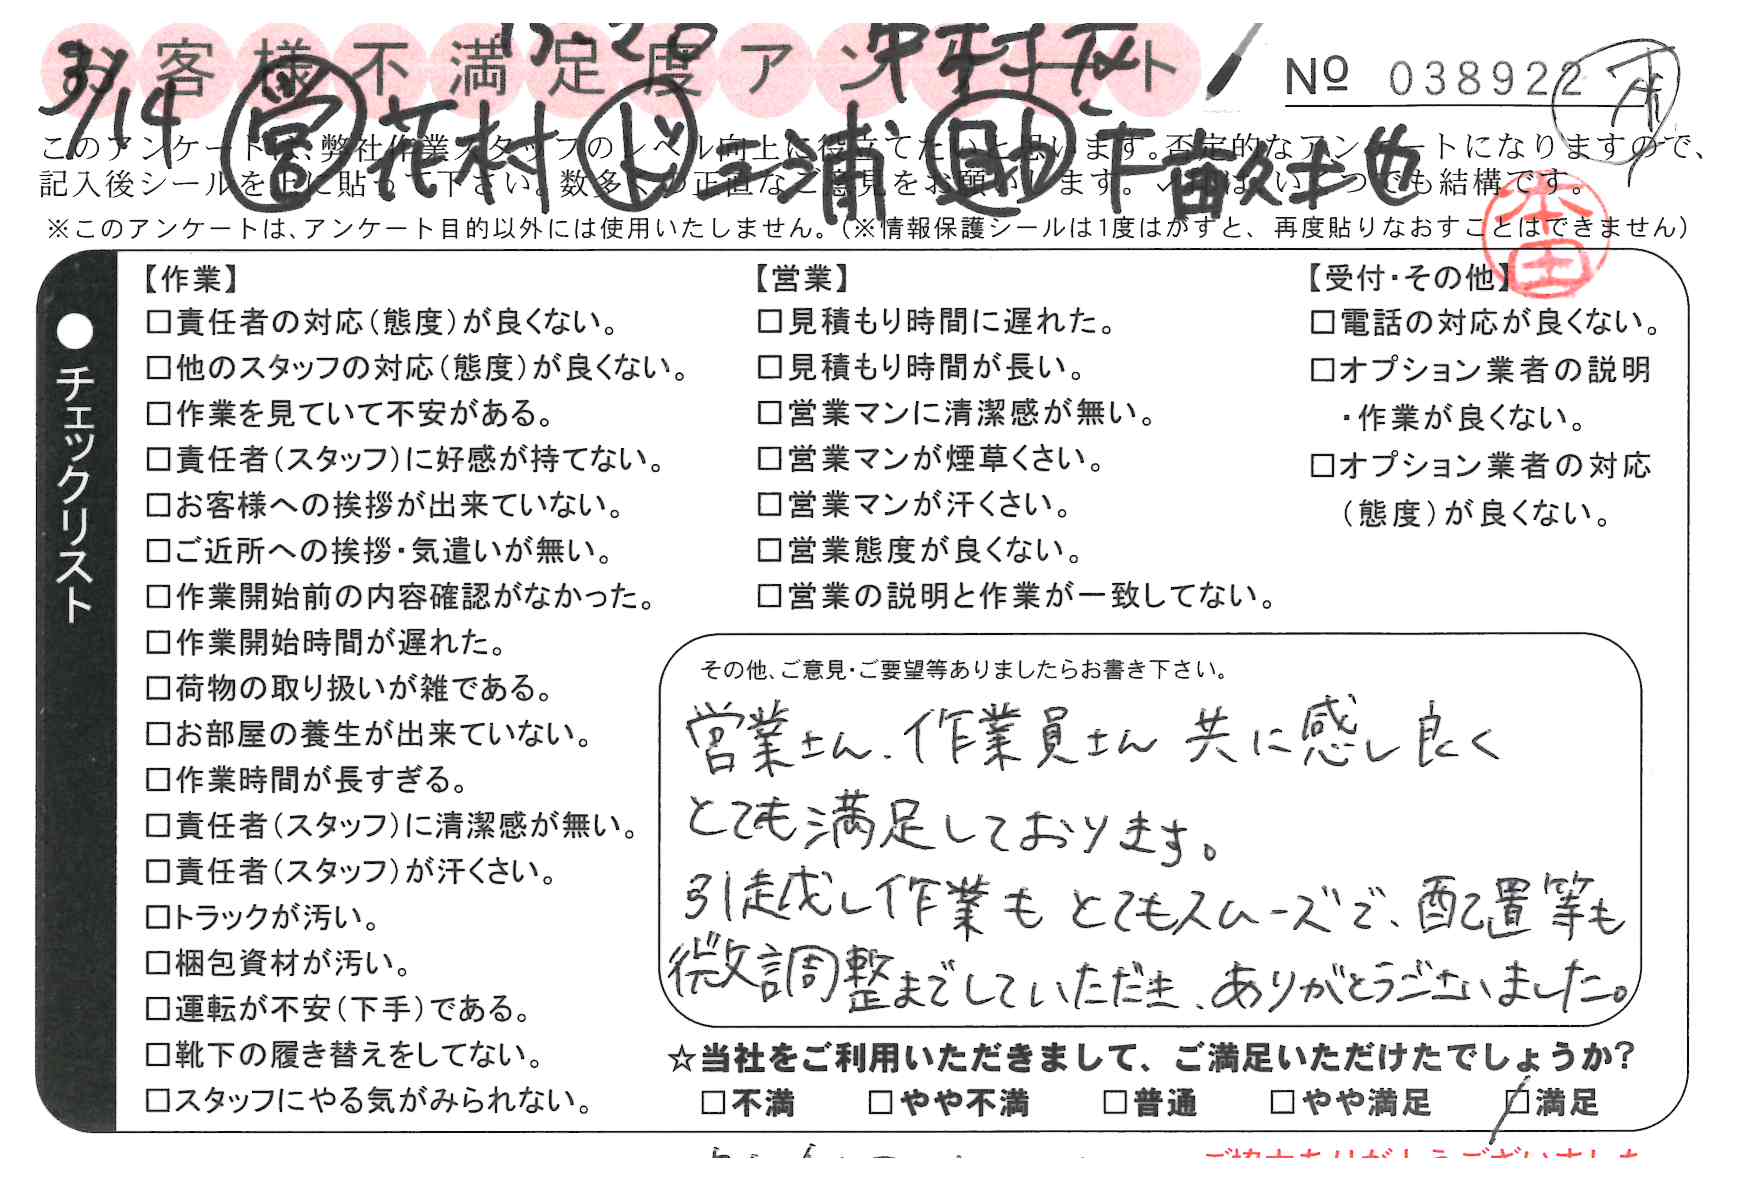 お客様不満足度アンケート
No 038922
3/14 営 花村 ド 三浦 助 下畝 久土也
このアンケートは、弊社作業スタッフのレベル向上に役立てたいと思います。否定的なアンケートになりますので、
記入後シールを上に貼って下さい。数多くの正直なご意見をお願いします。✓印はいくつでも結構です。
※このアンケートは、アンケート目的以外には使用いたしません。(※情報保護シールは1度はがすと、再度貼りなおすことはできません)
本田
●チェックリスト
【作業】
□責任者の対応(態度)が良くない。
□他のスタッフの対応(態度)が良くない。
□作業を見ていて不安がある。
□責任者(スタッフ)に好感が持てない。
□お客様への挨拶が出来ていない。
□ご近所への挨拶・気遣いが無い。
□作業開始前の内容確認がなかった。
□作業開始時間が遅れた。
□荷物の取り扱いが雑である。
□お部屋の養生が出来ていない。
□作業時間が長すぎる。
□責任者(スタッフ)に清潔感が無い。
□責任者(スタッフ)が汗くさい。
□トラックが汚い。
□梱包資材が汚い。
□運転が不安(下手)である。
□靴下の履き替えをしてない。
□スタッフにやる気がみられない。
【営業】
□見積もり時間に遅れた。
□見積もり時間が長い。
□営業マンに清潔感が無い。
□営業マンが煙草くさい。
□営業マンが汗くさい。
□営業態度が良くない。
□営業の説明と作業が一致してない。
【受付・その他】
□電話の対応が良くない。
□オプション業者の説明
・作業が良くない。
□オプション業者の対応
(態度)が良くない。
その他、ご意見・ご要望等ありましたらお書き下さい。
営業さん、作業員さん 共に感じ良く
とても満足しております。
引越し作業も とてもスムーズで、配置等も
微調整までしていただき、ありがとうございました。
☆当社をご利用いただきまして、ご満足いただけたでしょうか?
□不満 □やや不満 □普通 □やや満足 ☑満足
ご協力ありがとうございました